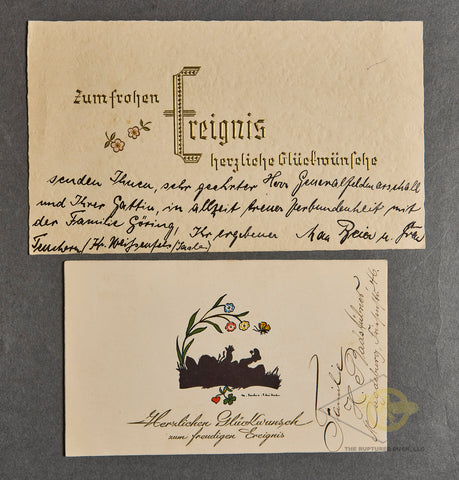 Zum frohen
Ereignis
herzliche Glückwünsche
senden Ihnen, sehr geehrter Herr Generalfeldmarschall
und Ihrer Gattin, in allzeit treuer Verbundenheit mit
der Familie Göring, Ihr ergebener Max u. Frau
Teuchern
Herzlichen Glückwunsch
zum freudigen Ereignis
Familie
Magdeburg
THE RUPTURED DUCK, LLC